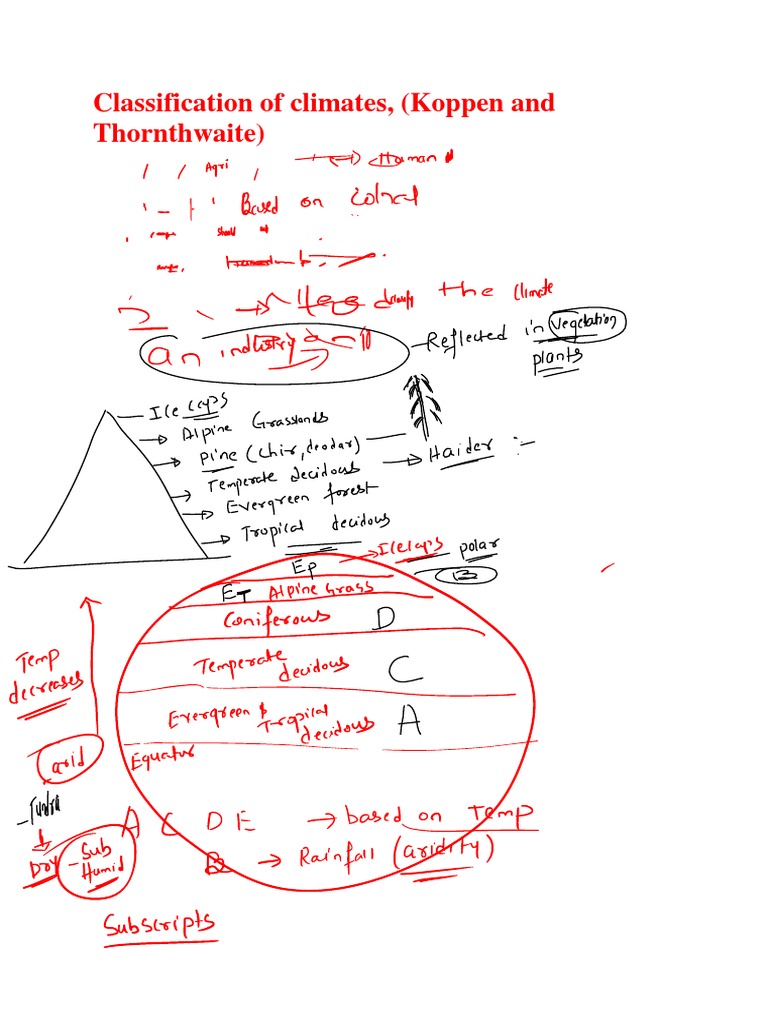 Classification of climates, (Koppen and
Thornthwaite)
Agri
Human
Based on
should
the climate
an industry
Reflected in Vegetation
plants
Ice caps
Alpine Grasslands
pine (chir, deodar)
Haider :-
Temperate decidous
Evergreen forest
Tropical decidous
Ep
Icecaps polar
B
ET Alpine Grass
Coniferous D
Temp
decreases
Temperate
decidous C
Evergreen &
Tropical
decidous A
Equator
arid
Tundra
A C D E → based on Temp
Dry - Sub
Humid
B → Rainfall (aridity)
Subscripts